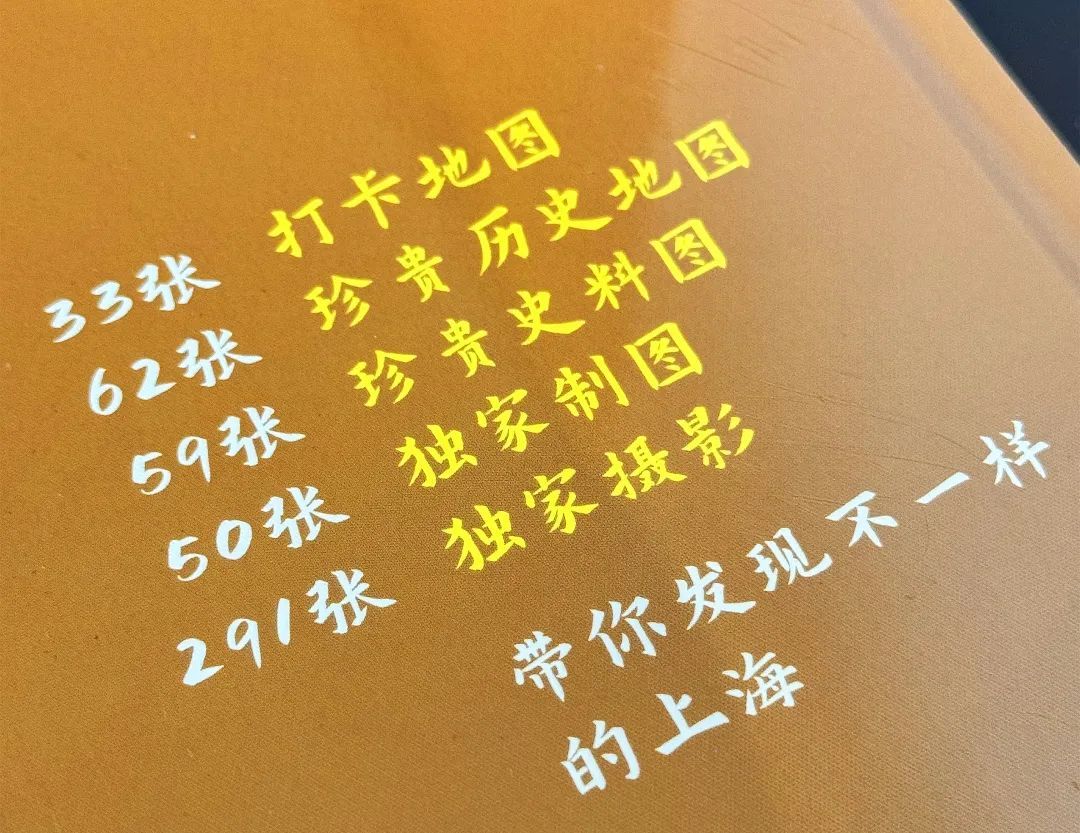 33张 打卡地图
62张 珍贵历史地图
59张 珍贵史料图
50张 独家制图
291张 独家摄影
带你发现不一样
的上海